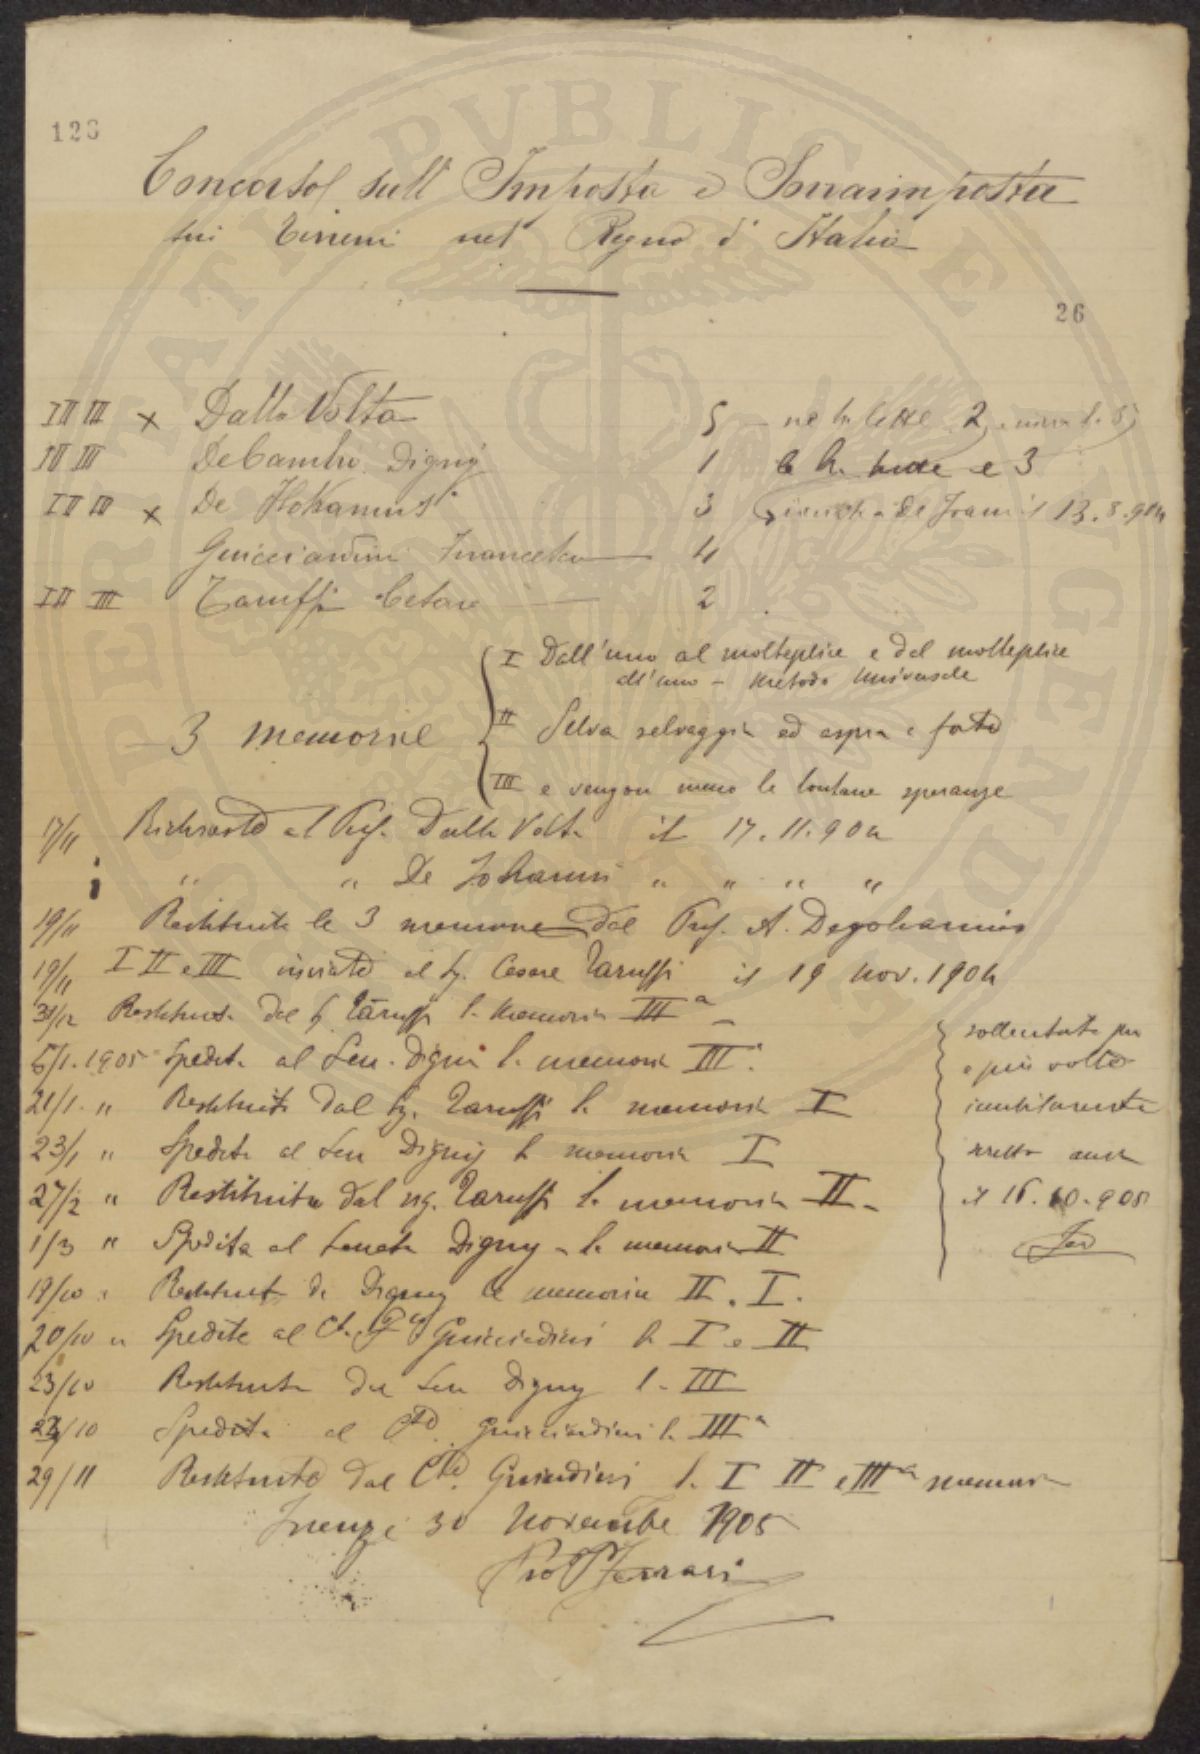 123
Concorso sull' Imposta e Sovraimposta
sui Terreni nel Regno d' Italia
26
I II III x Dalla Volta 5 ne ha lette 2
I II III De Cambray Digny 1 le ha tutte e 3
I II III x De Johannis 3 13.8.904
Guicciardini Francesco 4
I II III Taruffi Cesare 2
3 memorie
I Dall'uno al molteplice e dal molteplice
all'uno - Metodo Universale
II Selva selvaggia ed aspra e forte
III e vengon meno le lontane speranze
17/11 Richieste al Prof. Dalla Volta il 17.11.904
" " De Johannis " " " "
19/11 Restituite le 3 memorie dal Prof. A. De Johannis
19/11 I II e III inviate al Sg. Cesare Taruffi il 19 Nov. 1904
31/12 Restituita dal Sg Taruffi la Memoria IIIa
5/1.1905 Spedita al Sen. Digny la memoria III a
21/1 " Restituita dal Sg. Taruffi la memoria I
23/1 " Spedita al Sen Digny la memoria I
27/2 " Restituita dal sig. Taruffi la memoria II
1/3 " Spedita al Senat. Digny la memoria II
sollecitata più
e più volte
inutilmente
anche
il 16.10.905
19/10 " Restituite da Digny le memorie II e I.
20/10 " Spedite al Cte Guicciardini la I e II
23/10 Restituita dal Sen Digny la III
24/10 Spedita al Cte Guicciardini la III a
29/11 Restituite dal Cte. Guicciardini la I II e IIIa memoria
Firenze 30 Novembre 1905
Ferrari